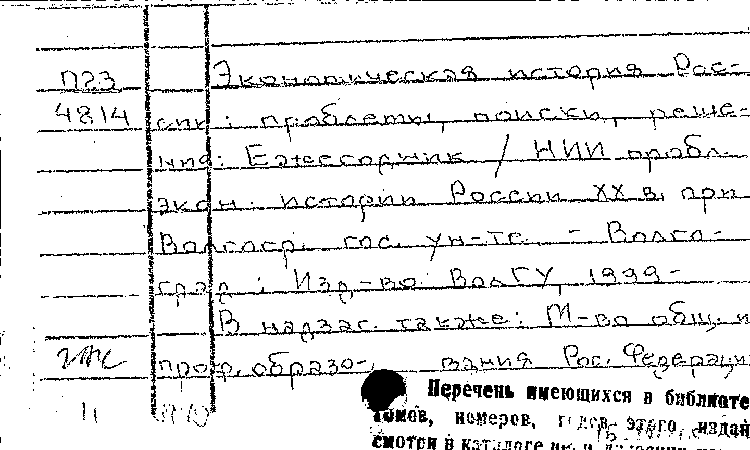 П23 Экономическая история Рос-
4814 сии: проблемы, поиски, реше-
ния: Ежегодник / НИИ пробл.
экон. истории России XX в. при
Волгогр. гос. ун-те. - Волго-
град: Изд-во ВолГУ, 1999-
В надзаг. также: М-во общ. и
проф. образо- вания Рос. Федерации
11 Перечень имеющихся в библиоте
томов, номеров, годов этого издан
смотри в каталоге